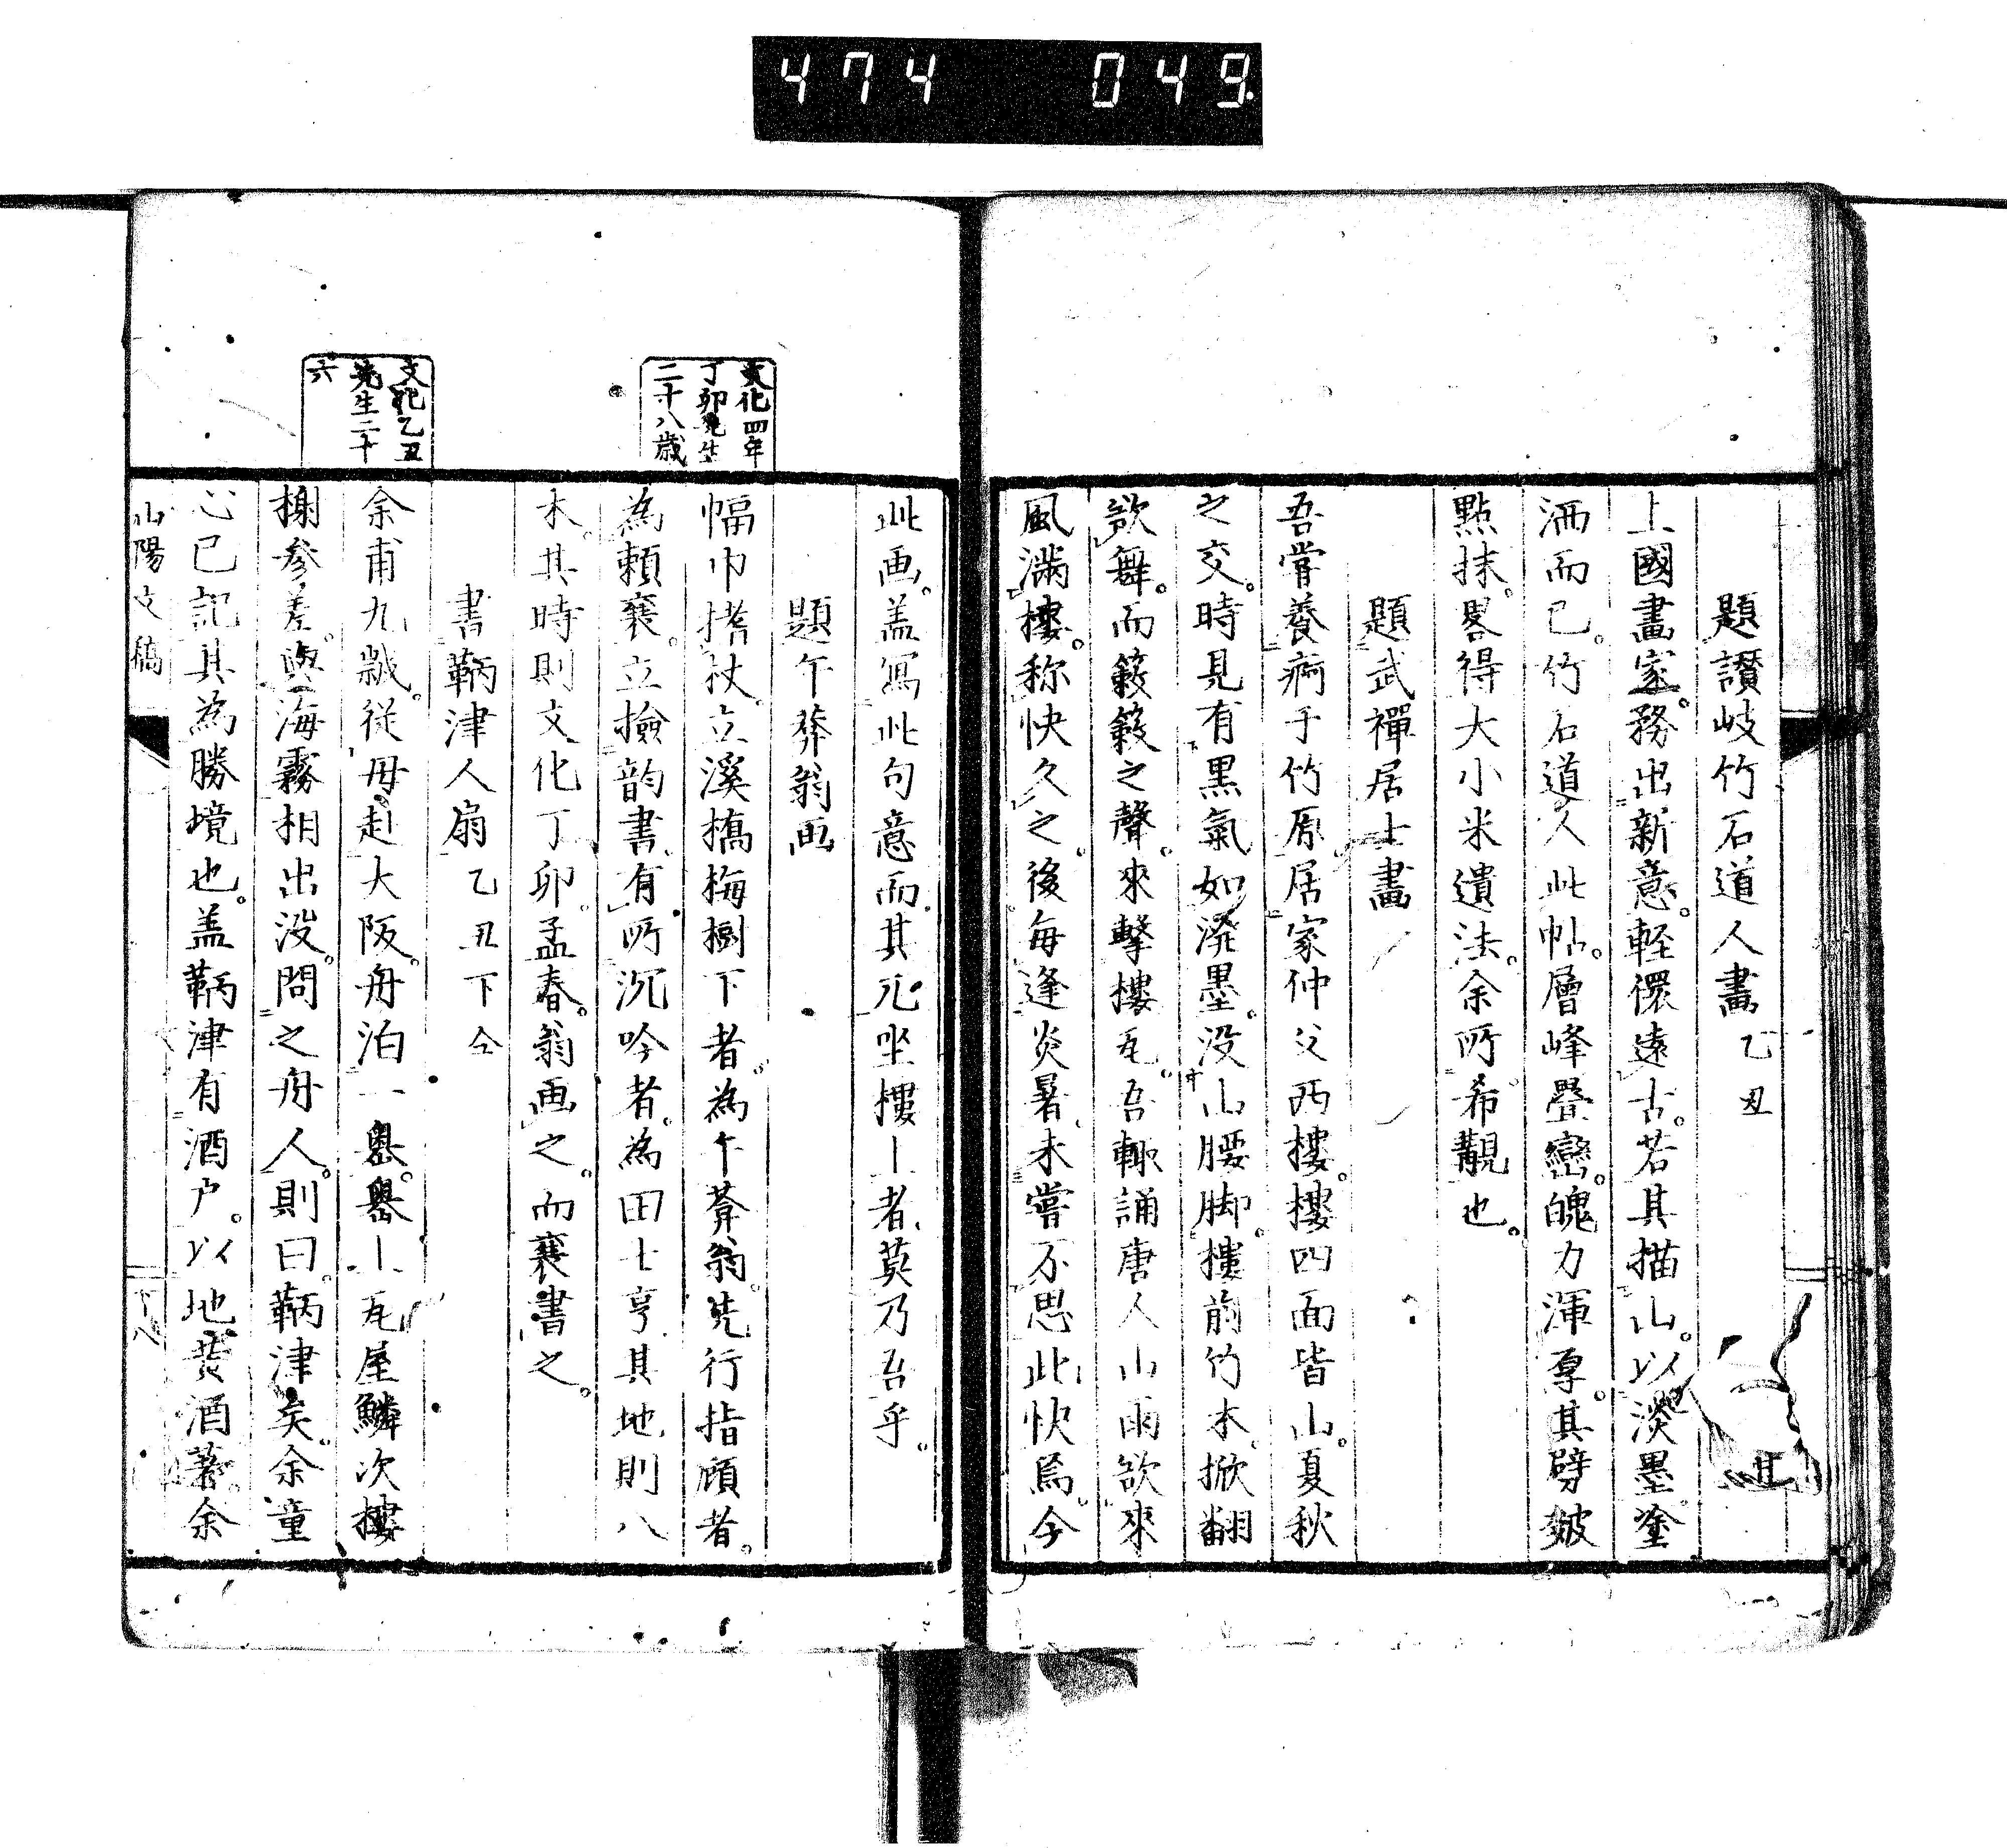 474 049
題讃岐竹石道人畫 乙丑
上國畫家。務出新意。軽儇遠古。若其描山。以淡墨塗
洒而已。竹石道人此帖。層峰疊巒。魄力渾厚。其劈皴
點抹。畧得大小米遺法。余所希覯也。
題武禪居士畫
吾嘗養痾于竹原居家仲父西樓。樓四面皆山。夏秋
之交。時見有黒氣如潑墨。没山腰脚。樓前竹木。掀翻
欲舞。而簌簌之聲。來撃樓瓦。吾輙誦唐人山雨欲來
風滿樓。称快久之。後毎逢炎暑。未嘗不思此快焉。今
此画。盖寫此句意而其兀坐樓上者。莫乃吾乎。
文化四年
丁卯先生
二十八歳
題午莽翁画
幅巾搘杖。立溪橋梅樹下者。為午莽翁。先行指顧者。
為頼襄。立撿韵書。有所沉吟者。為田士亨其地則八
木。其時則文化丁卯。孟春。翁画之。而襄書之。
書鞆津人扇 乙丑下仝
文化乙丑
先生二十
六
余甫九歳。従母赴大阪。舟泊一嶴。嶴上瓦屋鱗次樓
榭参差。與海霧相出没。問之舟人。則曰。鞆津矣。余童
心已記其為勝境也。盖鞆津有酒户。以地黄酒著。余
山陽文稿